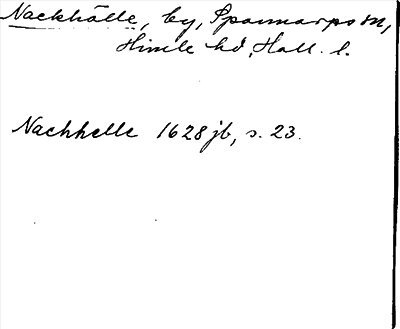 Nackhälle, by, Spannarps sn,
Himle hd, Hall. l.
Nachhelle 1628 jb, s. 23.